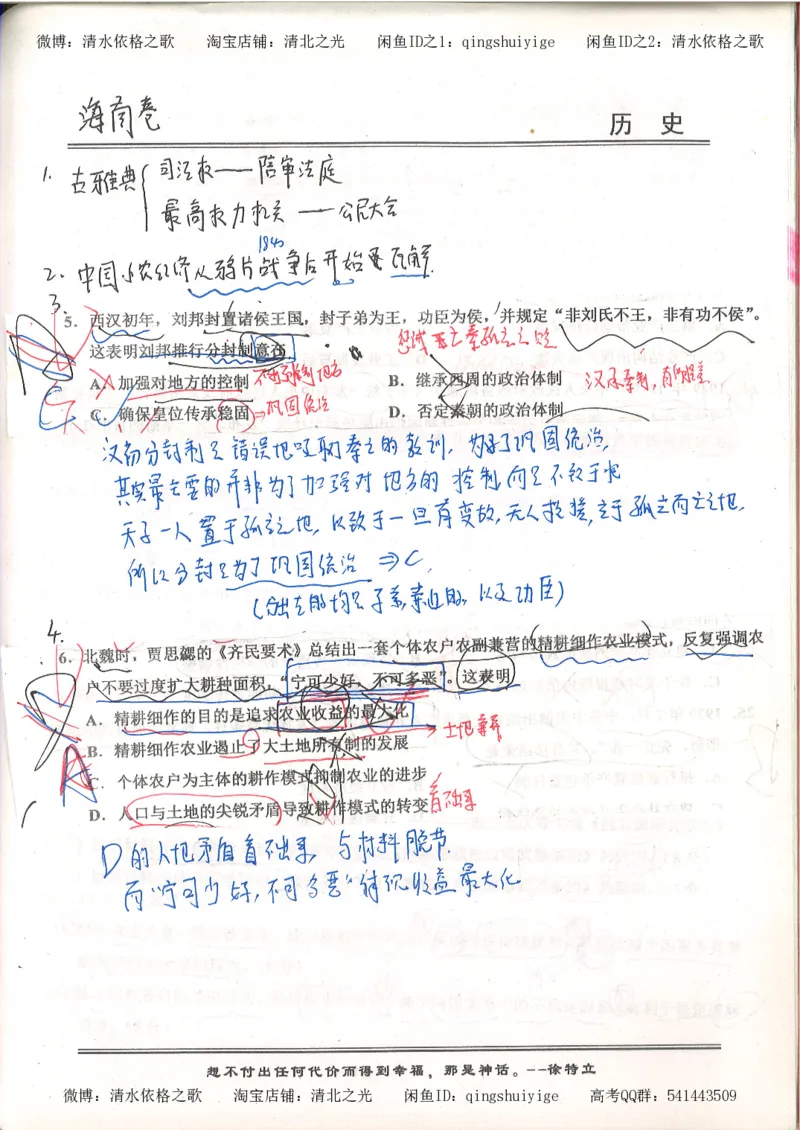 微博：清水依格之歌 淘宝店铺：清北之光 闲鱼ID之1：qingshuiyige 闲鱼ID之2：清水依格之歌
海南卷
历 史
1. 古雅典 司法权——陪审法庭
最高权力机关——公民大会
1840
2. 中国小农经济从鸦片战争后开始瓦解.
3.
5. 西汉初年，刘邦封置诸侯王国，封子弟为王，功臣为侯，并规定“非刘氏不王，非有功不侯”。
这表明刘邦推行分封制意在
A. 加强对地方的控制 B. 继承西周的政治体制 汉承秦制，有所
C. 确保皇位传承稳固 ⇒巩固统治 D. 否定秦朝的政治体制
汉初分封制是错误地吸取秦亡的教训，为了巩固统治，
其实最主要的并非为了加强对地方的控制，而是不致于把
天子一人置于孤立之地，以致于一旦有变故，无人救援，立于孤立而亡之地.
所以分封是为了巩固统治 ⇒C.
4.
6. 北魏时，贾思勰的《齐民要术》总结出一套个体农户农副兼营的精耕细作农业模式，反复强调农
户不要过度扩大耕种面积，“宁可少好，不可多恶”。这表明
A. 精耕细作的目的是追求农业收益的最大化
土地兼并
B. 精耕细作农业遏止了大土地所有制的发展
C. 个体农户为主体的耕作模式抑制农业的进步
D. 人口与土地的尖锐矛盾导致耕作模式的转变 看因果
D的人地矛盾看因果，与材料脱节.
而“宁可少好，不可多恶”体现收益最大化
想不付出任何代价而得到幸福，那是神话。--徐特立
微博：清水依格之歌 淘宝店铺：清北之光 闲鱼ID：qingshuiyige 高考QQ群：541443509